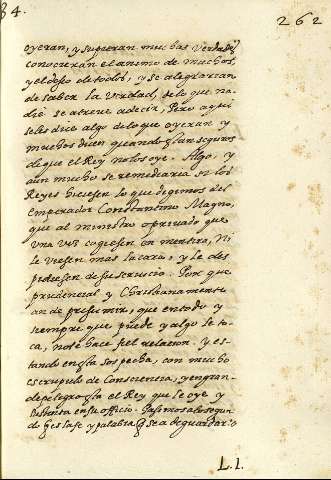 84.
262
oyeran, y supieran muchas verdades,
conocieran el animo de muchos,
y el deseo de todos, y se alegrarian
de saber la verdad, de lo que na-
die se atreve a decir, Pero aqui
se les dice algo de lo que oyeran y
muchos dicen quando estan seguros
de que el Rey no los oye. Algo, y
aun mucho se remediaria si los
Reyes hiciesen lo que degimos del
Emperador Constantino Magno,
que al ministro o privado que
una vez cogiesen en mentira, ni
le viesen mas la cara, y le des
pidiesen de su servicio. Por que
prudencial y Christianamente
an de presumir, que en todo y
siempre que puede y algo le to-
ca, no le hace fiel relacion. y es-
tando en esta sospecha, con mucho
escrupulo de Consciencia, y en gran-
de peligro esta el Rey que le oye y
sustenta en su officio. Pasemos a lo segun-
do q es la fe y palabra q se a de guardar.
L.I.